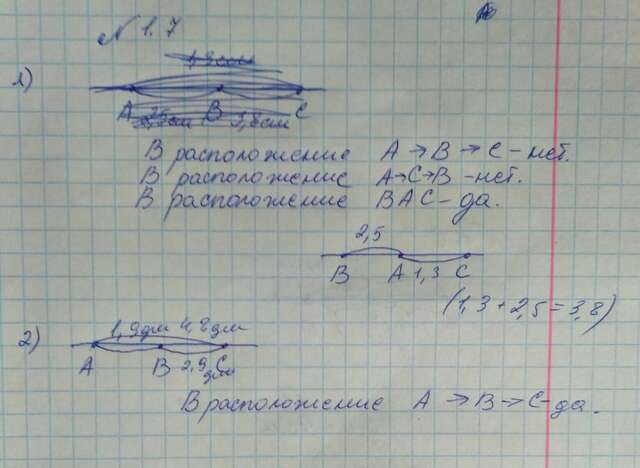 N 1.7
1)
A 2,5см B 3,8см C
В расположение A → B → C - нет.
В расположение A → C → B - нет.
В расположение BAC - да.
2,5
B A 1,3 C
(1,3 + 2,5 = 3,8)
2)
1,9дм 4,8дм
A B 2,9 C
дм
В расположение A → B → C - да.